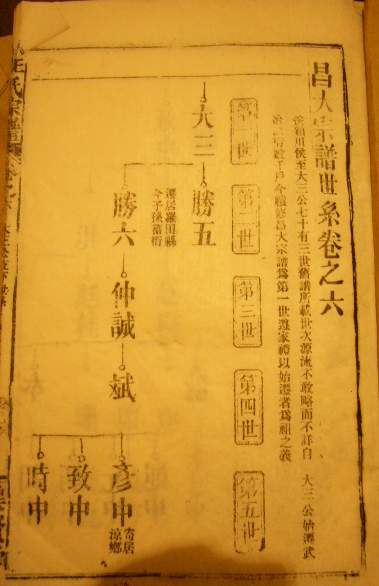 昌大宗譜世系卷之六
潁川侯至大三公七十有三世舊譜所載世次源流不敢略而不詳自 大三公始遷武
昌大宗譜爲第一世遵家禮以始遷者爲祖之義
第一世
第二世
第三世
第四世
第五世
大三
勝五
遷居羅田縣
今子孫蕃衍
勝六
仲誠
斌
彥中
寄居
涼鄉
致中
時中
汪氏宗譜